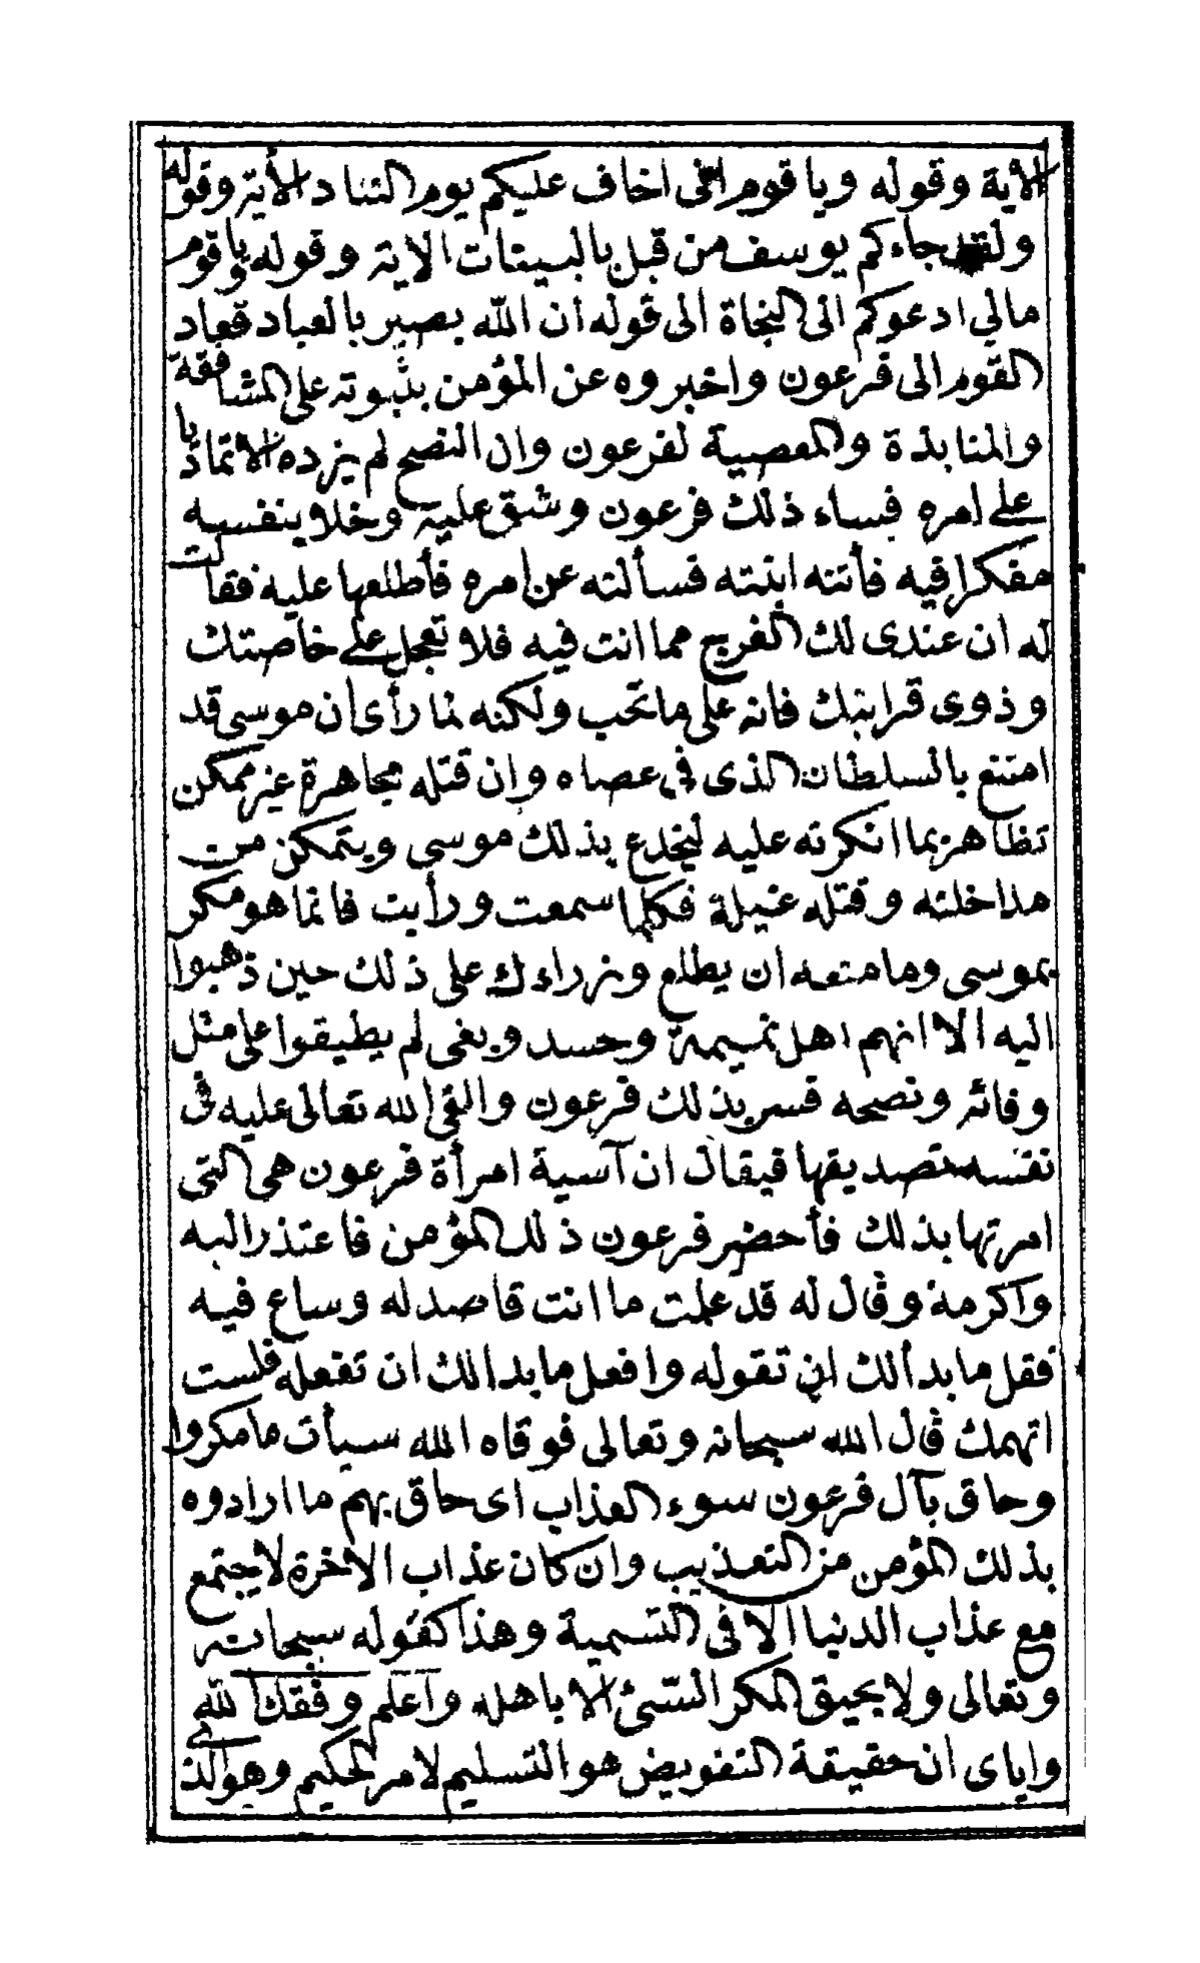 الاية وقوله ويا قوم انى اخاف عليكم يوم التناد الأية وقوله
ولقد جاءكم يوسف من قبل بالبينات الاية وقوله ويا قوم
مالي ادعوكم الى النجاة الى قوله ان الله بصير بالعباد فعاد
القوم الى فرعون واخبروه عن المؤمن بثبوته على المشاققة
والمنابذة والمعصية لفرعون وان النصح لم يزده الا تماديا
على امره فساء ذلك فرعون وشق عليه وخلا بنفسه
مفكرا فيه فأتته ابنته فسألته عن امره فأطلعها عليه فقالت
له ان عندى لك الفرج مما انت فيه فلا تعجل على خاصتك
وذوى قرابتك فانه على ما تحب ولكنه لما رأى ان موسى قد
امتنع بالسلطان الذى في عصاه وان قتله مجاهرة غير ممكن
تظاهر بما انكرته عليه ليخدع بذلك موسى ويتمكن من
مداخلته وقتله غيلة فكلما سمعت ورأيت فانما هو مكر
بموسى وما منعه ان يطلع وزراءك على ذلك حين ذهبوا
اليه الا انهم اهل نميمة وحسد وبغى لم يطيقوا على مثل
وفائه ونصحه فسر بذلك فرعون والقى الله تعالى عليه في
نفسه تصديقها فيقال ان آسية امرأة فرعون هى التى
امرتها بذلك فأحضر فرعون ذلك المؤمن فاعتذر اليه
واكرمه وقال له قد علمت ما انت قاصد له وساع فيه
فقل ما بدا لك ان تقوله وافعل ما بدا لك ان تفعله فلست
اتهمك قال الله سبحانه وتعالى فوقاه الله سيأت ما مكروا
وحاق بآل فرعون سوء العذاب اى حاق بهم ما ارادوه
بذلك المؤمن من التعذيب وان كان عذاب الاخرة لا يجتمع
مع عذاب الدنيا الا فى التسمية وهذا كقوله سبحانه
وتعالى ولا يحيق المكر السيئ الا باهله واعلم وفقك الله
واياى ان حقيقة التفويض هو التسليم لامر الحكيم وهو الذى